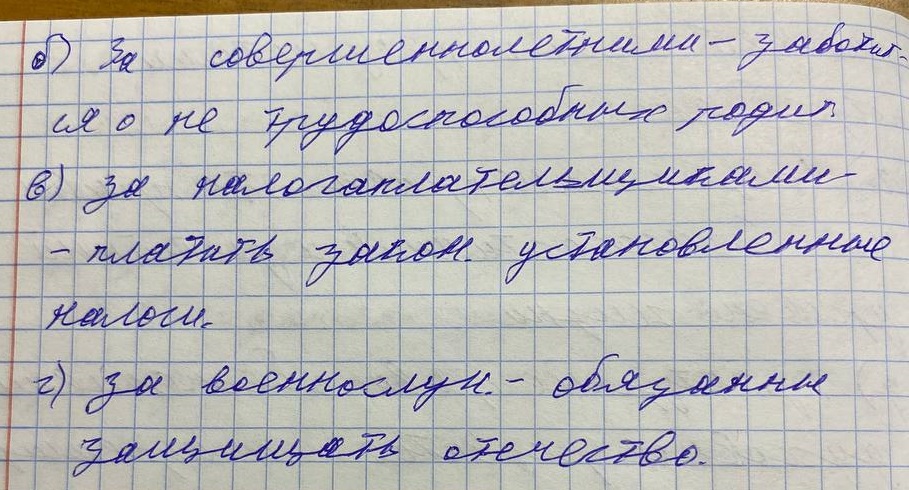 б) За совершеннолетними – заботит-
ся о не трудоспособных родит.
в) за налогаплательщиками –
– платить закон. установленные
налоги.
г) за военнослуж. – обязанны
защищать отечество.